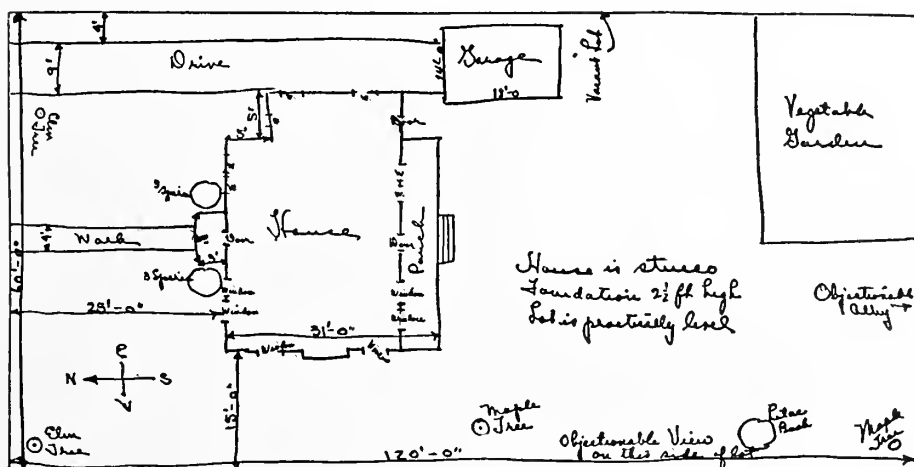 4'
9'
Drive
14'-0"
Garage
18'-0
Vacant Lot
Vegetable
Garden
Elm
Tree
5'
5'
Door
3 Spirea
Walk
4'
60'-0"
Door
House
Door
Porch
3 Spirea
Window
Window
Window
25'-0"
31'-0"
House is stucco
Foundation 2½ ft high
Lot is practically level
Objectionable
Alley
N
S
15'-0"
Window
Elm
Tree
Maple
Tree
Objectionable View
on this side of lot
Lilac
Bush
Maple
Tree
120'-0"